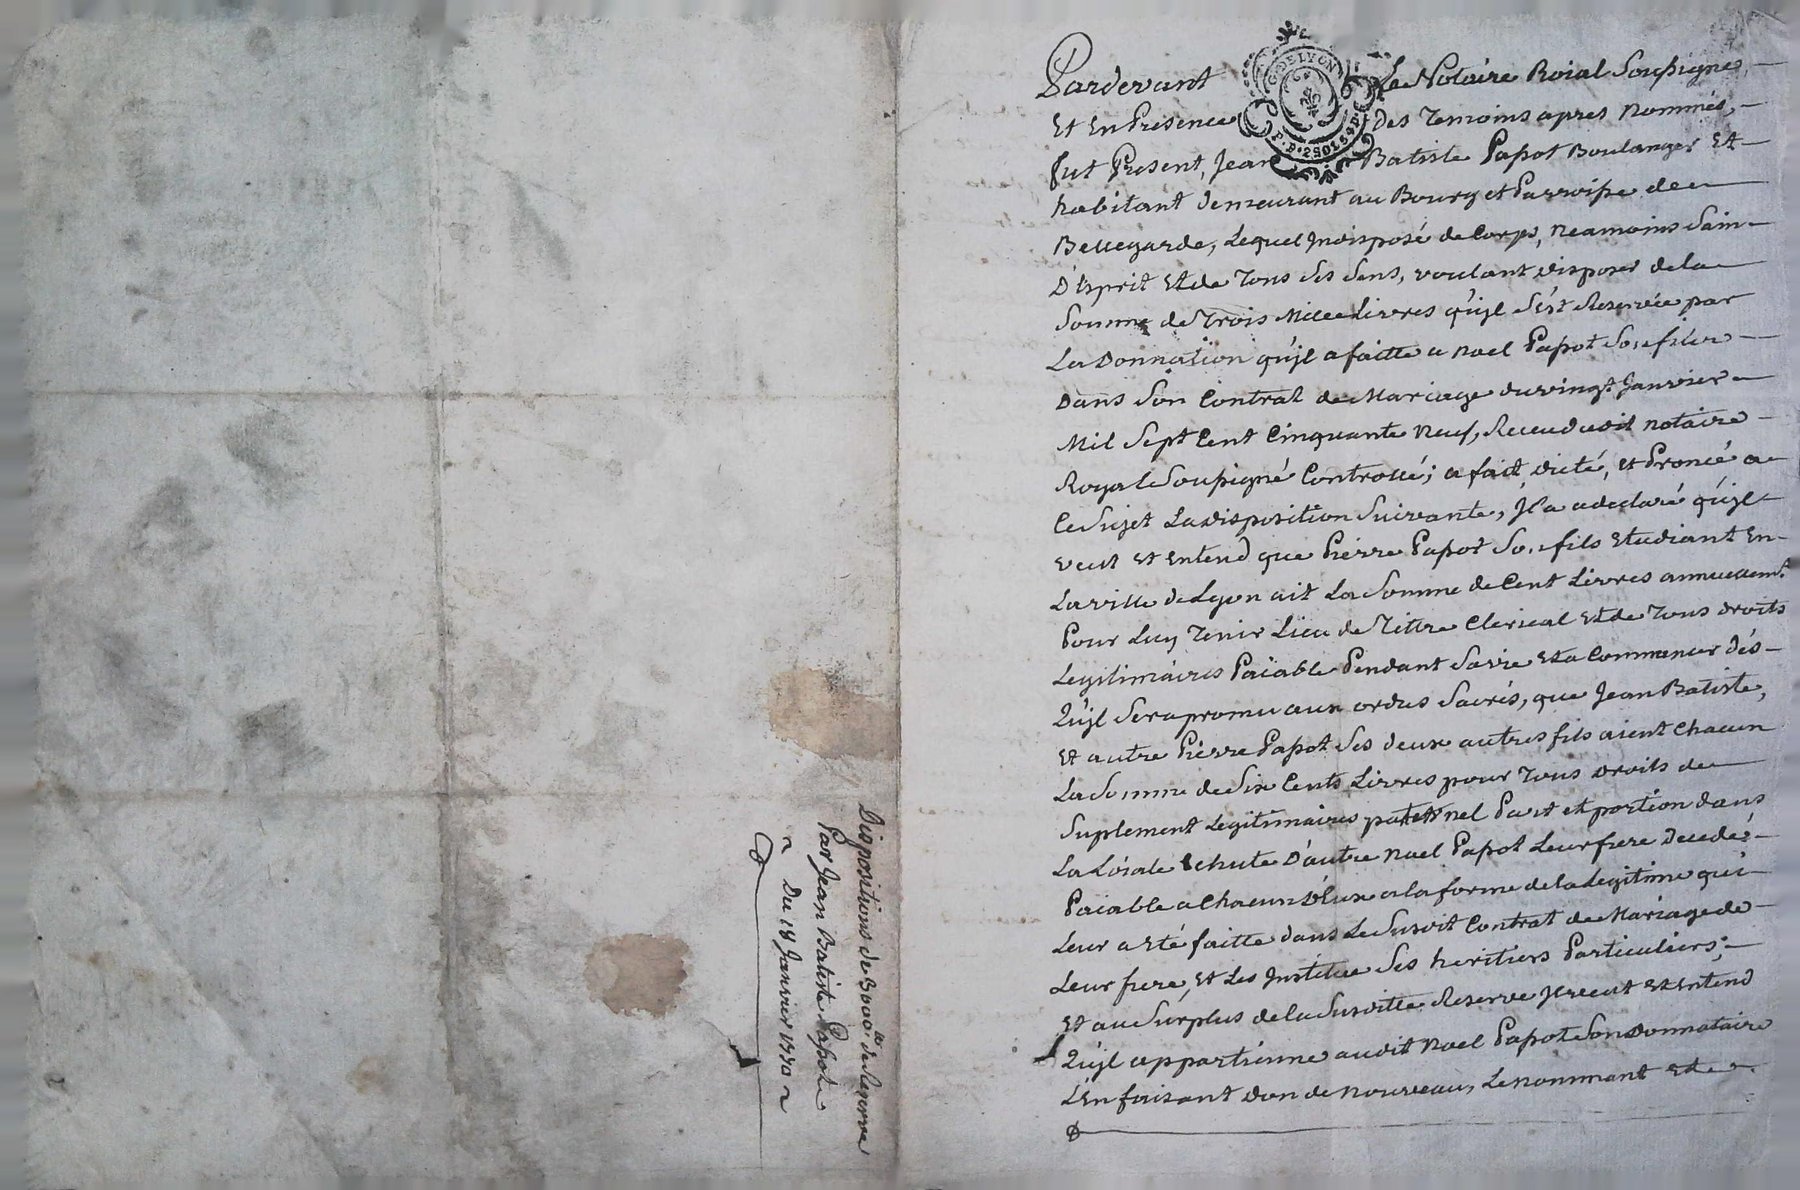 Dispositions de 3000 ₶ de Reserve
Par Jean Batiste Papot
Du 18 Janvier 1770
G. DE LYON
P.P. 2 SOLS 4 D.
Pardevant Le Notaire Roial Soussigné,
Et En Presence Des Temoins apres Nommés,
fut Present, Jean Batiste Papot Boulanger Et
habitant demeurant au Bourg et Parroisse de
Bellegarde, Lequel Indisposé de Corps, neamoins Sain
D'Esprit Et de Tous Ses Sens, voulant disposer de la
Somme de Trois Mille Livres qu'jl s'ést Reservée par
La Donnation qu'jl a faitte a Noel Papot Son fils
Dans Son Contrat de Mariage du vingt Janvier
Mil Sept Cent Cinquante Neuf, Receu dudit notaire
Royal Soussigné Controllé; a fait, dicté, et Proncé a
Ce Sujet La disposition Suivante, Jl a declaré qu'jl
veut et Entend que Pierre Papot Son fils Etudiant En
La ville de Lyon ait La Somme de Cent Livres annuellemt
Pour Luy Tenir Lieu de Tittre Clerical Et de Tous droits
Legitimaires Païable Pendant Sa vie Et a Commencer dés
Qu'jl Sera promu aux ordres Sacrés, que Jean Batiste,
Et autre Pierre Papot Ses deux autres fils aient Chacun
La Somme de Six Cents Livres pour Tous Droits de
Suplement Legitimaires paternel Part et portion dans
La Loiale Echute D'autre Noel Papot Leur frere Decedé
Païable a Chacun D'Eux a la forme de la Legitime qui
Leur a Eté faitte dans Le Susdit Contrat de Mariage de
Leur frere, Et Les Institue Ses heritiers Particuliers;
Et au Surplus de la Susditte Reserve Jl veut Et Entend
Qu'jl appartienne audit Noel Papot Son Donnataire
L'En faisant don de nouveau, Le nommant Et